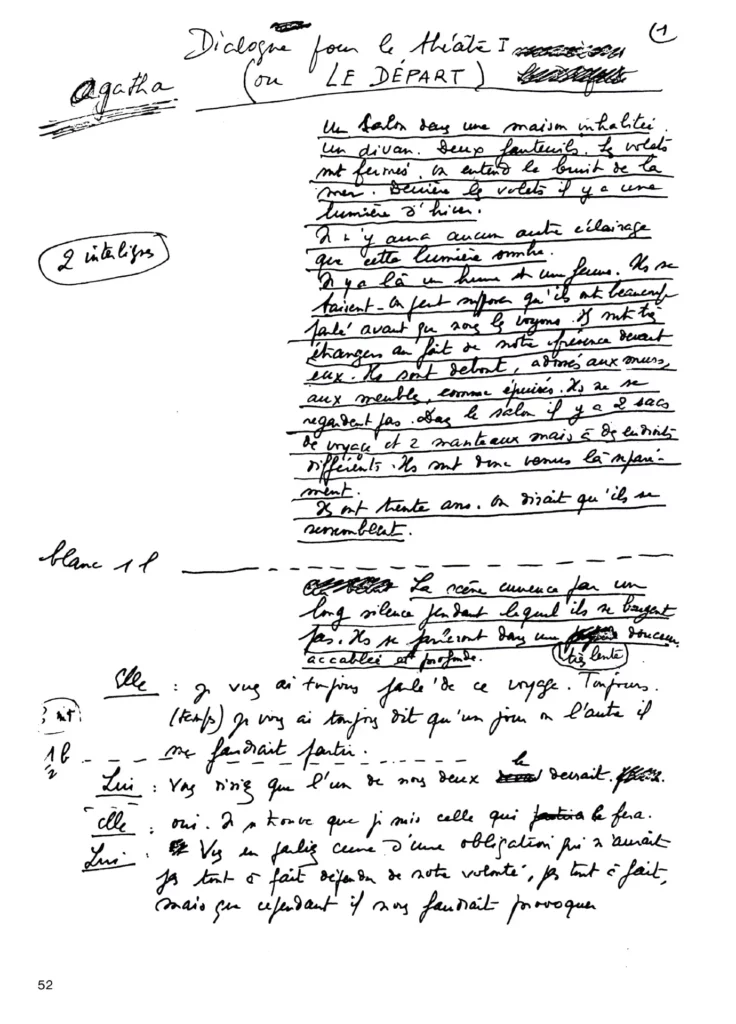 (1
Dialogue pour le théâtre I
agatha (ou LE DÉPART)
Un salon dans une maison inhabitée.
un divan. Deux fauteuils. Les volets
sont fermés. on entend le bruit de la
mer. Derrière les volets il y a une
lumière d'hiver.
Il n'y aura aucun autre éclairage
2 interlignes
que cette lumière sombre.
Il y a là un homme et une femme. Ils se
taisent. On peut supposer qu'ils ont beaucoup
parlé avant que nous les voyons. Ils sont très
étrangers au fait de notre présence devant
eux. Ils sont debout, adossés aux murs,
aux meubles, comme épuisés. Ils ne se
regardent pas. Dans le salon il y a 2 sacs
de voyage et 2 manteaux mais à des endroits
différents. Ils sont donc venus là séparé-
ment.
Ils ont trente ans. on dirait qu'ils se
ressemblent.
blanc 1 l
La scène commence par un
long silence pendant lequel ils ne bougent
pas. Ils se parleront dans une douceur
accablée et profonde.
très lente
Elle : je vous ai toujours parlé de ce voyage. Toujours.
(temps) je vous ai toujours dit qu'un jour ou l'autre il
me faudrait partir.
Lui : Vous disiez que l'un de nous deux le devrait.
Elle : oui. Il se trouve que je suis celle qui partira le fera.
Lui : Vous en parliez comme d'une obligation qui n'aurait
pas tout à fait dépendu de notre volonté, pas tout à fait,
mais que cependant il nous faudrait provoquer
52